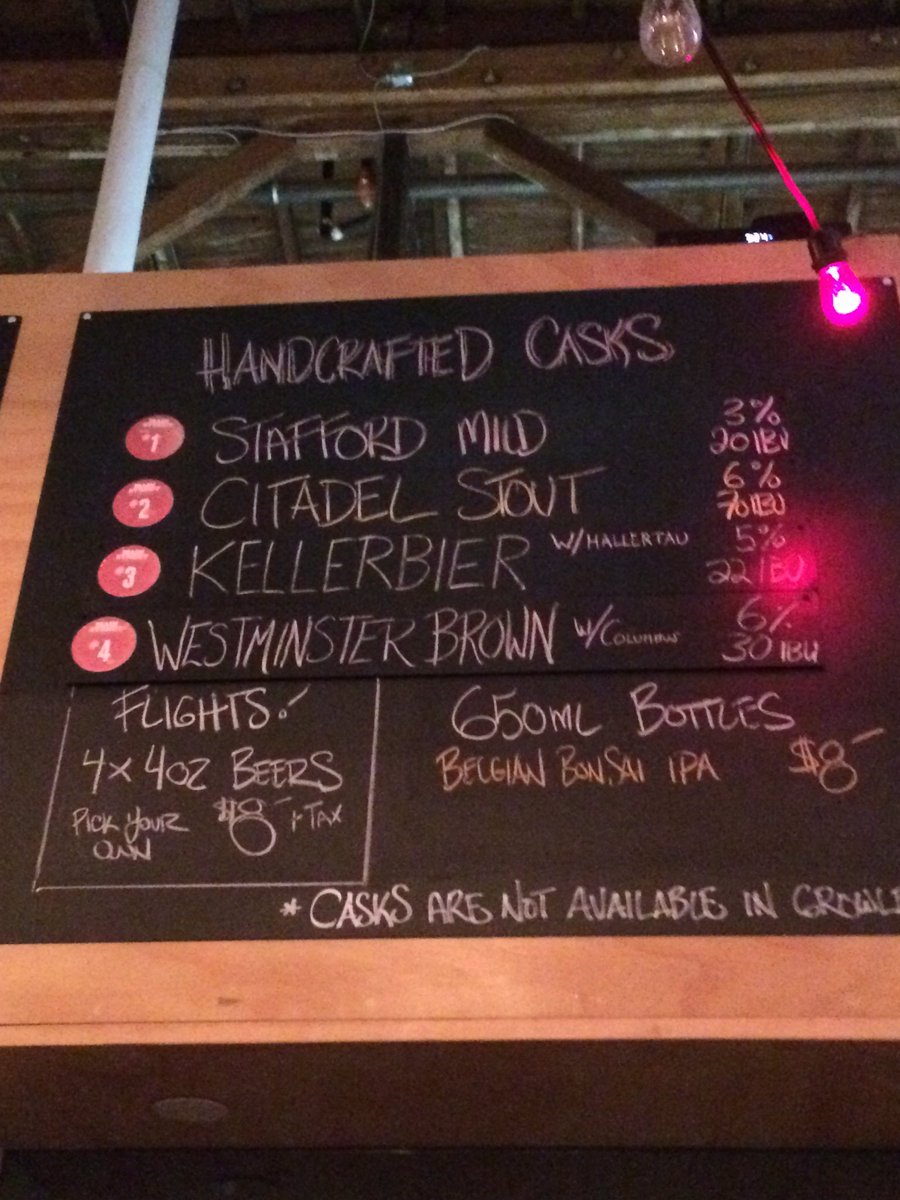 HANDCRAFTED CASKS
#1 STAFFORD MILD 3% 20 IBU
#2 CITADEL STOUT 6% 70 IBU
#3 KELLERBIER W/HALLERTAU 5% 22 IBU
#4 WESTMINSTER BROWN W/COLUMBUS 6% 30 IBU
FLIGHTS!
4x 4OZ BEERS
PICK YOUR OWN $8- + TAX
650ML BOTTLES
BELGIAN BONSAI IPA $8-
* CASKS ARE NOT AVAILABLE IN GROWLE